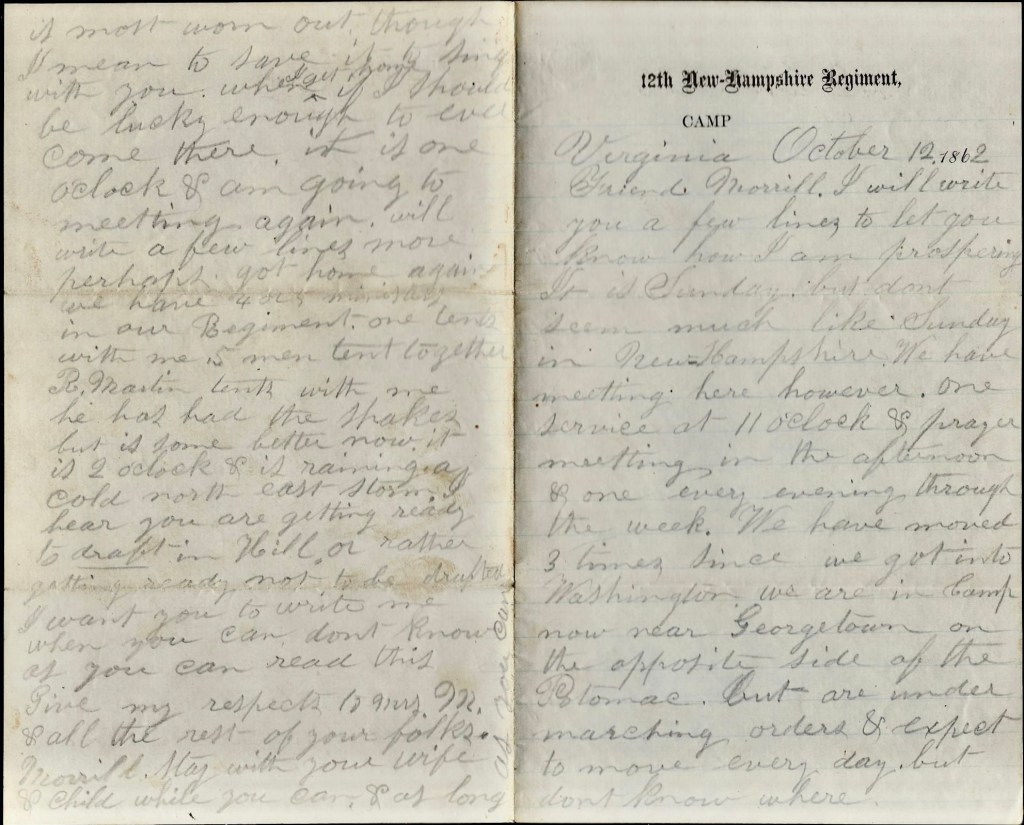 12th New-Hampshire Regiment,
CAMP
Virginia October 12, 1862
Friend Morrill. I will write
you a few lines to let you
know how I am prospering
It is Sunday. but dont
seem much like Sunday
in New-Hampshire. We have
meeting here however. one
service at 11 oclock & prayer
meetting in the afternoon
& one every evening through
the week. We have moved
3 times since we got into
Washington we are in Camp
now near Georgetown on
the opposite side of the
Potomac. but are under
marching orders & expect
to move every day. but
dont know where.
is most worn out. though
I mean to save it to sing
with you. when I get home if I should
be lucky enough to ever
come there. it is one
oclock & am going to
meetting again. will
write a few lines more
perhaps. got home again
we have 4 or 5 ministers
in our Regiment. one tents
with me. 5 men tent together
R. Martin tents with me
he has had the shakes
but is some better now. it
is 2 oclock & is raining a
cold north east storm. I
hear you are getting ready
to draft in Hill, or rather
getting ready not to be drafted
I want you to write me
when you can. dont know
as you can read this
Give my respects to Mrs. M.
& all the rest of your folks.
Morrill. Stay with your wife
& child while you can, & as long
as you can